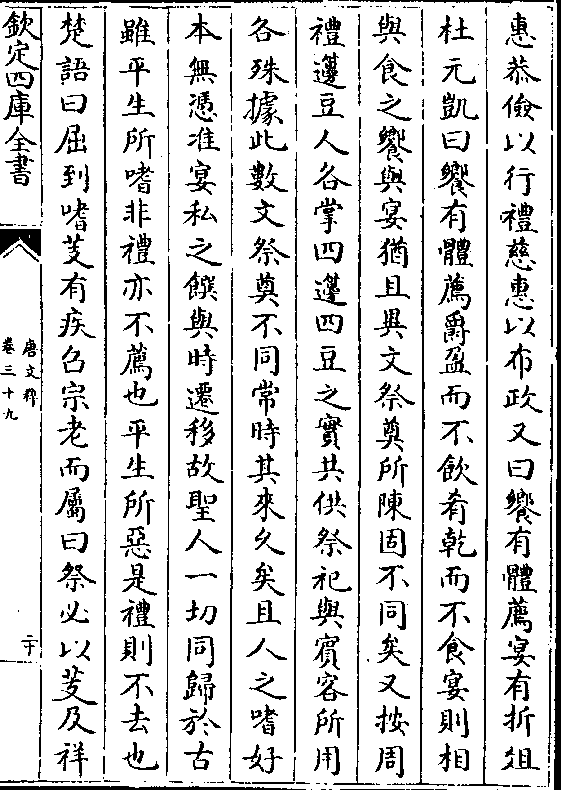 惠恭儉以行禮慈惠以布政又曰饗有體薦宴有折俎
杜元凱曰饗有體薦爵盈而不飲肴乾而不食宴則相
與食之饗與宴猶且異文祭奠所陳固不同矣又按周
禮籩豆人各掌四籩四豆之實共供祭祀與賓客所用
各殊據此數文祭奠不同常時其來久矣且人之嗜好
本無憑准宴私之饌與時遷移故聖人一切同歸於古
雖平生所嗜非禮亦不薦也平生所惡是禮則不去也
楚語曰屈到嗜芰有疾召宗老而屬曰祭必以芰及祥
欽定四庫全書
唐文粹
卷三十九
二十